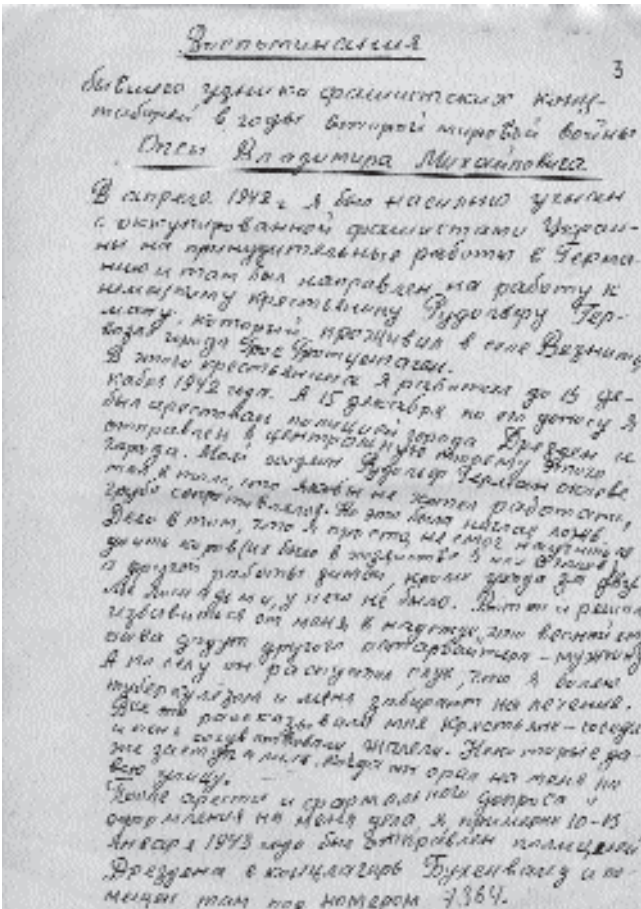 Воспоминания
3
бывшего узника фашистских конц-
лагерей в годы второй мировой войны
Владимира Михайловича
В апреле 1942 г я был насильно угнан
с оккупированной фашистами Украи-
ны на принудительные работы в Герма-
нию и там был направлен на работу к
немецкому крестьянину Рудольфу Гер-
ману, который проживал в селе
возле города
В этого крестьянина я работал до 15 де-
кабря 1942 года. А 15 декабря по его доносу я
был арестован полицией города Дрезден и
отправлен в центральную тюрьму этого
города. Мой хозяин Рудольф Герман
том, что я не хотел работать,
грубо сопротивлялся. Но это была наглая ложь.
Дело в том, что я просто не смог научиться
доить коров (их было в хозяйстве
а другой работы зимой, кроме ухода за
лошадьми, у него не было. Вот и решил
избавиться от меня в надежде, что весной ему
другого мужчину
А по селу он распустил слух, что я болею
туберкулёзом и меня забирают на лечение.
Все это рассказывали мне крестьяне-соседи
и меня жалели. Некоторые да-
же когда он орал на меня на
всю улицу.
После ареста и формального допроса и
оформления на меня дела, я примерно 10-15
января 1943 года был отправлен полицией
Дрездена в концлагерь Бухенвальд и по-
мещен там под номером 7364.